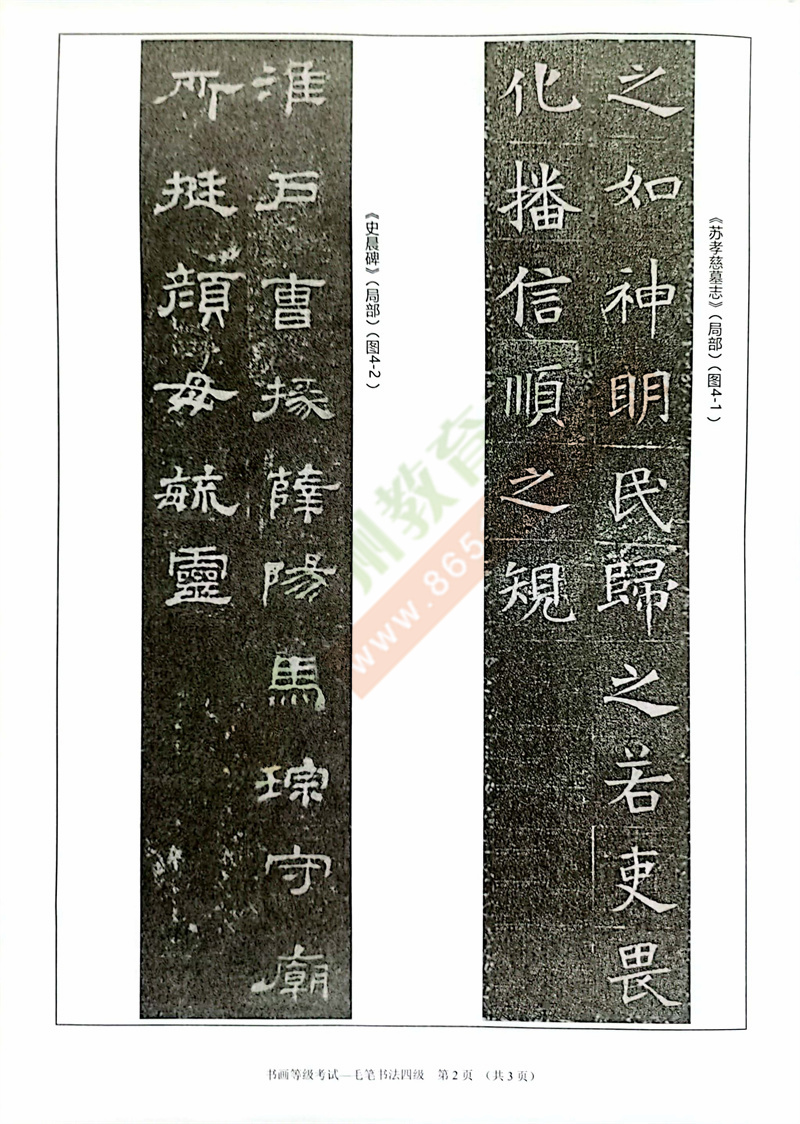 之如神明民歸之若吏畏
化播信順之規
《苏孝慈墓志》（局部）（图4-1）
淮戶曹掾薛陽馬琮守廟
所挺顏母毓靈
《史晨碑》（局部）（图4-2）
州教育
www.865
书画等级考试—毛笔书法四级 第2页 （共3页）